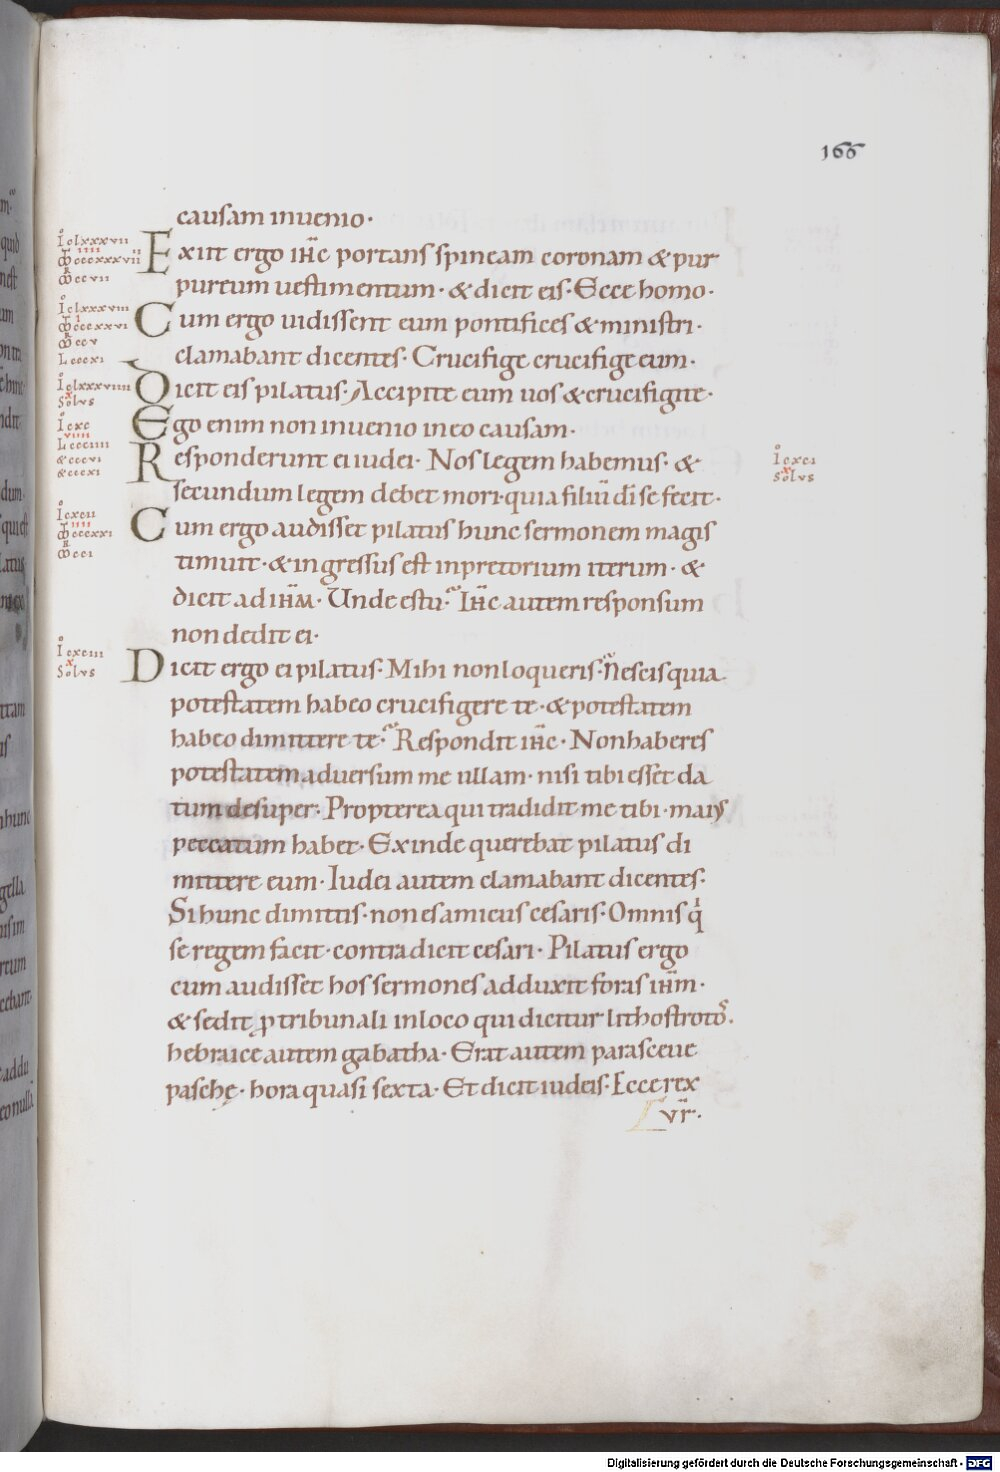 166
causam inuenio·
Exiit ergo ih̅c portans spineam coronam & pur
pureum uestimentum· & dicit eis· Ecce homo·
Cum ergo uidissent eum pontifices & ministri·
clamabant dicentes· Crucifige crucifige eum·
Dicit eis pilatus· Accipite eum uos & crucifigite·
Ego enim non inuenio in eo causam·
Responderunt ei iudei· Nos legem habemus· &
secundum legem debet mori· quia filiu̅ di̅ se fecit·
Cum ergo audisset pilatus hunc sermonem magis
timuit· & ingressus est in pretorium iterum· &
dicit ad ih̅m· Unde es tu? Ih̅c autem responsum
non dedit ei·
Dicit ergo ei pilatus· Mihi non loqueris? n̅ escis quia
potestatem habeo crucifigere te· & potestatem
habeo dimittere te? Respondit ih̅c· Non haberes
potestatem aduersum me ullam· nisi tibi esset da
tum desuper· Propterea qui tradidit me tibi· maiꝰ
peccatum habet· Exinde querebat pilatus di
mittere eum· Iudei autem clamabant dicentes·
Si hunc dimittis· non es amicus cesaris· Omnis qi
se regem facit· contradicit cesari· Pilatus ergo
cum audisset hos sermones adduxit foras ih̅m·
& sedit ꝓ tribunali in loco qui dicitur lithostroto·
hebraice autem gabatha· Erat autem parasceue
paschę· hora quasi sexta· Et dicit iudeis· Ecce rex
vr̅·
I clxxxvii
I clxxxviii
L cccxi
I clxxxviiii
Solvs
I cxc
L ccciiii
I cxci
Solvs
I cxcii
I cxciii
Solvs
Digitalisierung gefördert durch die Deutsche Forschungsgemeinschaft - DFG